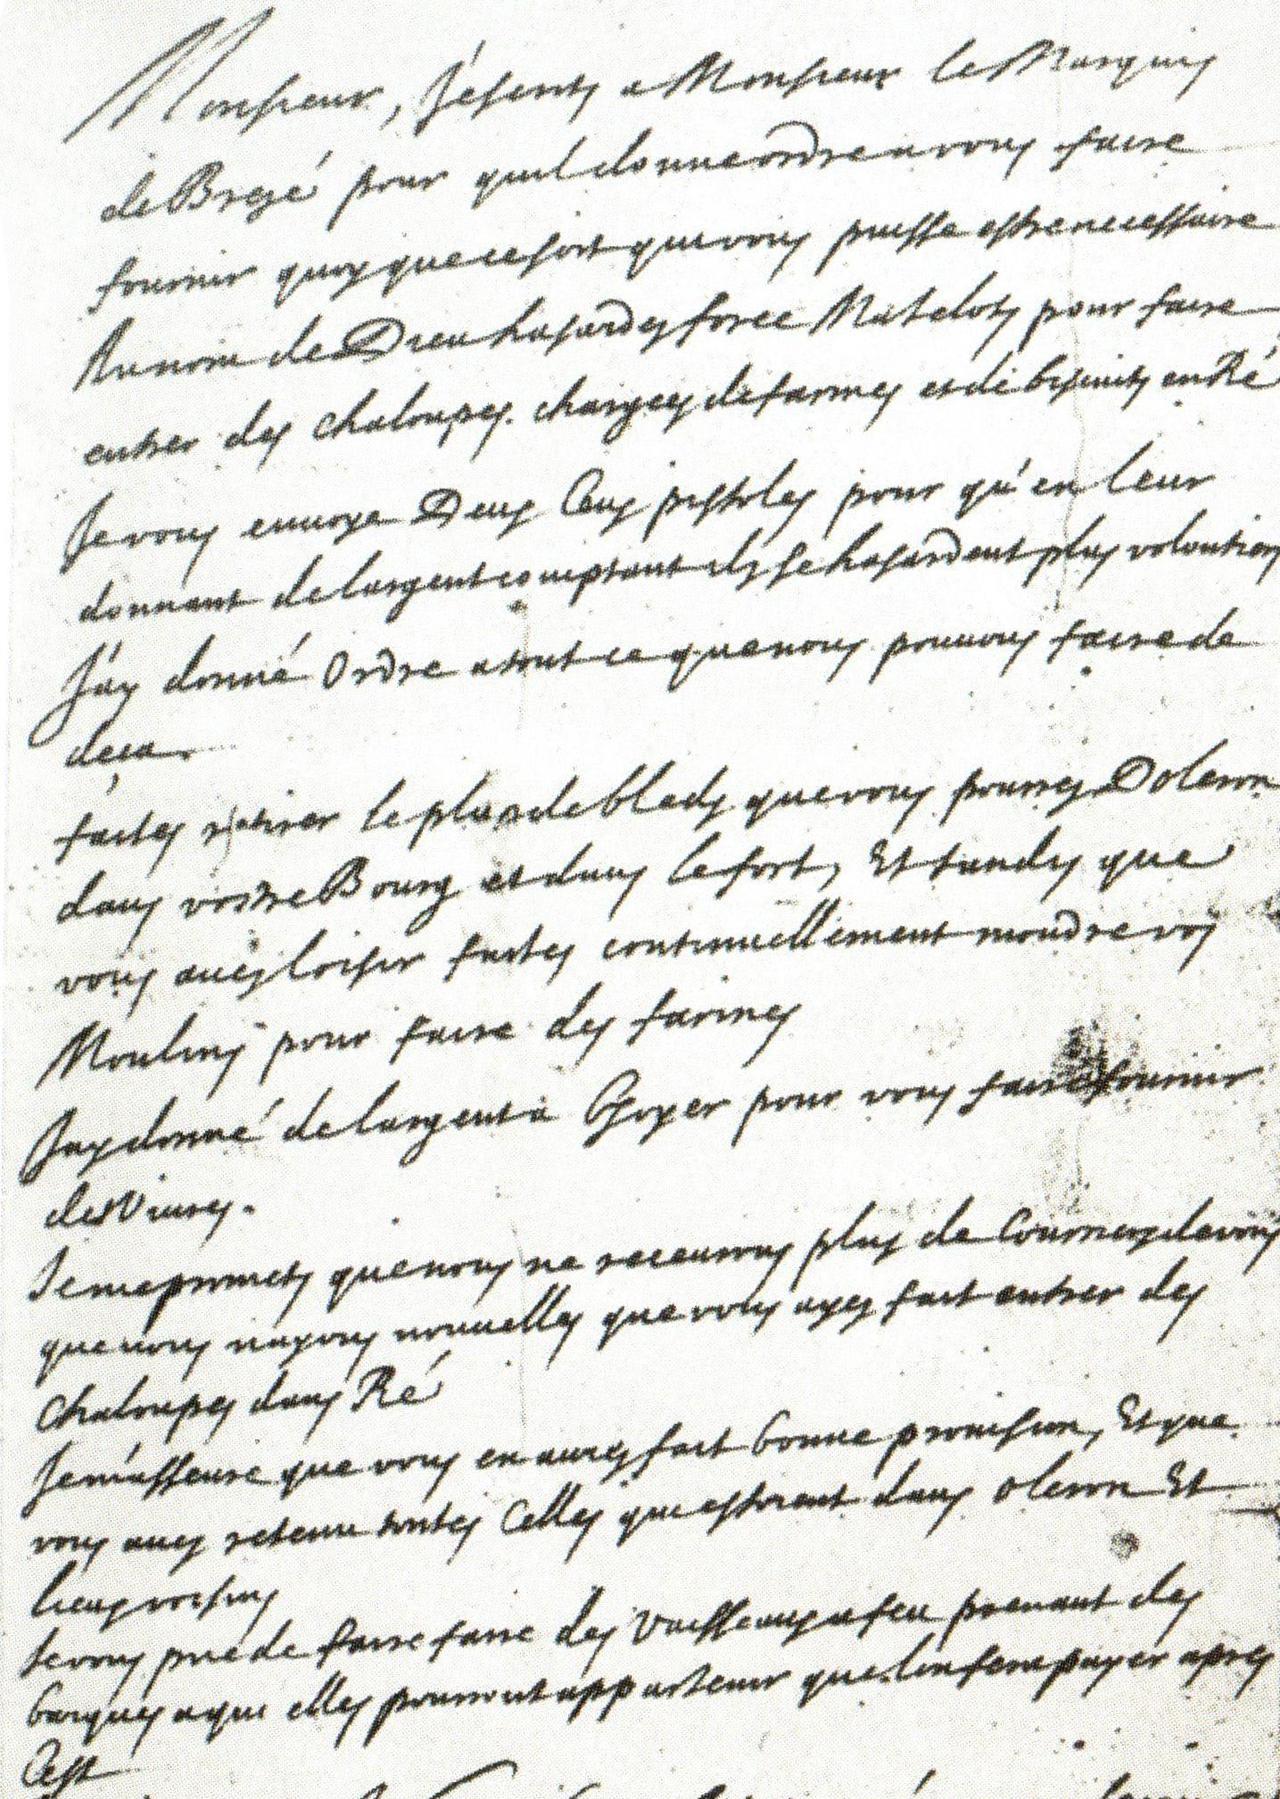 Monsieur, J'éscrits a Monsieur le Marquis
de Brezé pour quil donne ordre a vous faire
fournir quoy que ce soit que vous puisse estre necessaire
Au nom de Dieu hasardes force Matelots pour faire
entrer des chaloupes chargees de farines et de biscuits en Ré
Je vous enuoye Deux Cens pistoles pour qu'en leur
donnant de largent comptant ils se hasardent plus volontiers
J'ay donné Ordre a tout ce que nous pouuons faire de
deça.
faites retirer le plus de bleds que vous pourres Doleron
dans vostre Bourg et dans le fort, Et tandis que
vous aues loisir faites continuellement moudre vos
Moulins pour faire des farines
Jay donné de largent a Groyer pour vous faire fournir
des Viures.
Je me promets que nous ne receurons plus de Courriers de vous
que nous nayons nouuelles que vous ayes fait entrer des
Chaloupes dans Ré
Je m'asseure que vous en aures fait bonne prouision, Et que
vous aues retenu toutes Celles qui estoient dans oleron Et
lieux voisins
Je vous prie de faire faire des Vaisseaux a feu prenant des
barques a qui elles pourront appartenir que l'on fera payer apres
Cest